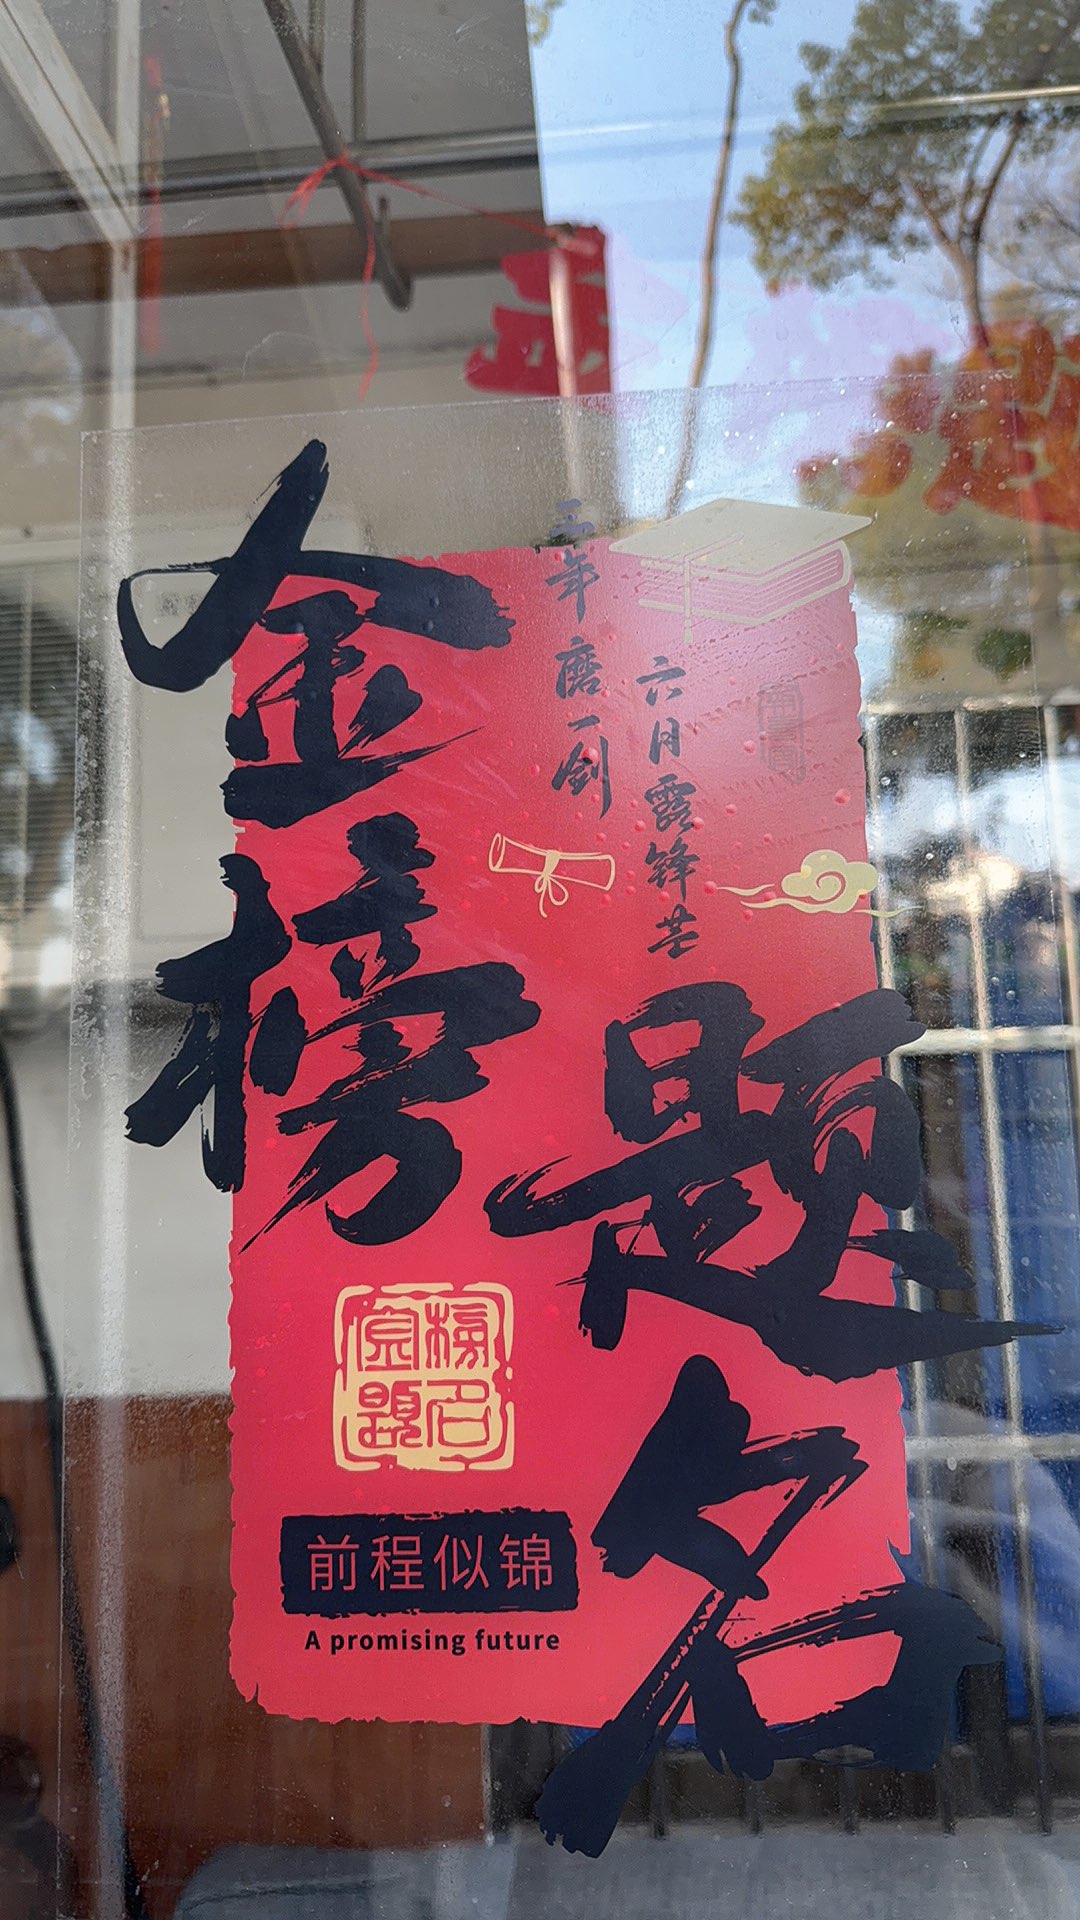 金榜
题名
三年磨一剑
六月露锋芒
金榜
题名
前程似锦
A promising future